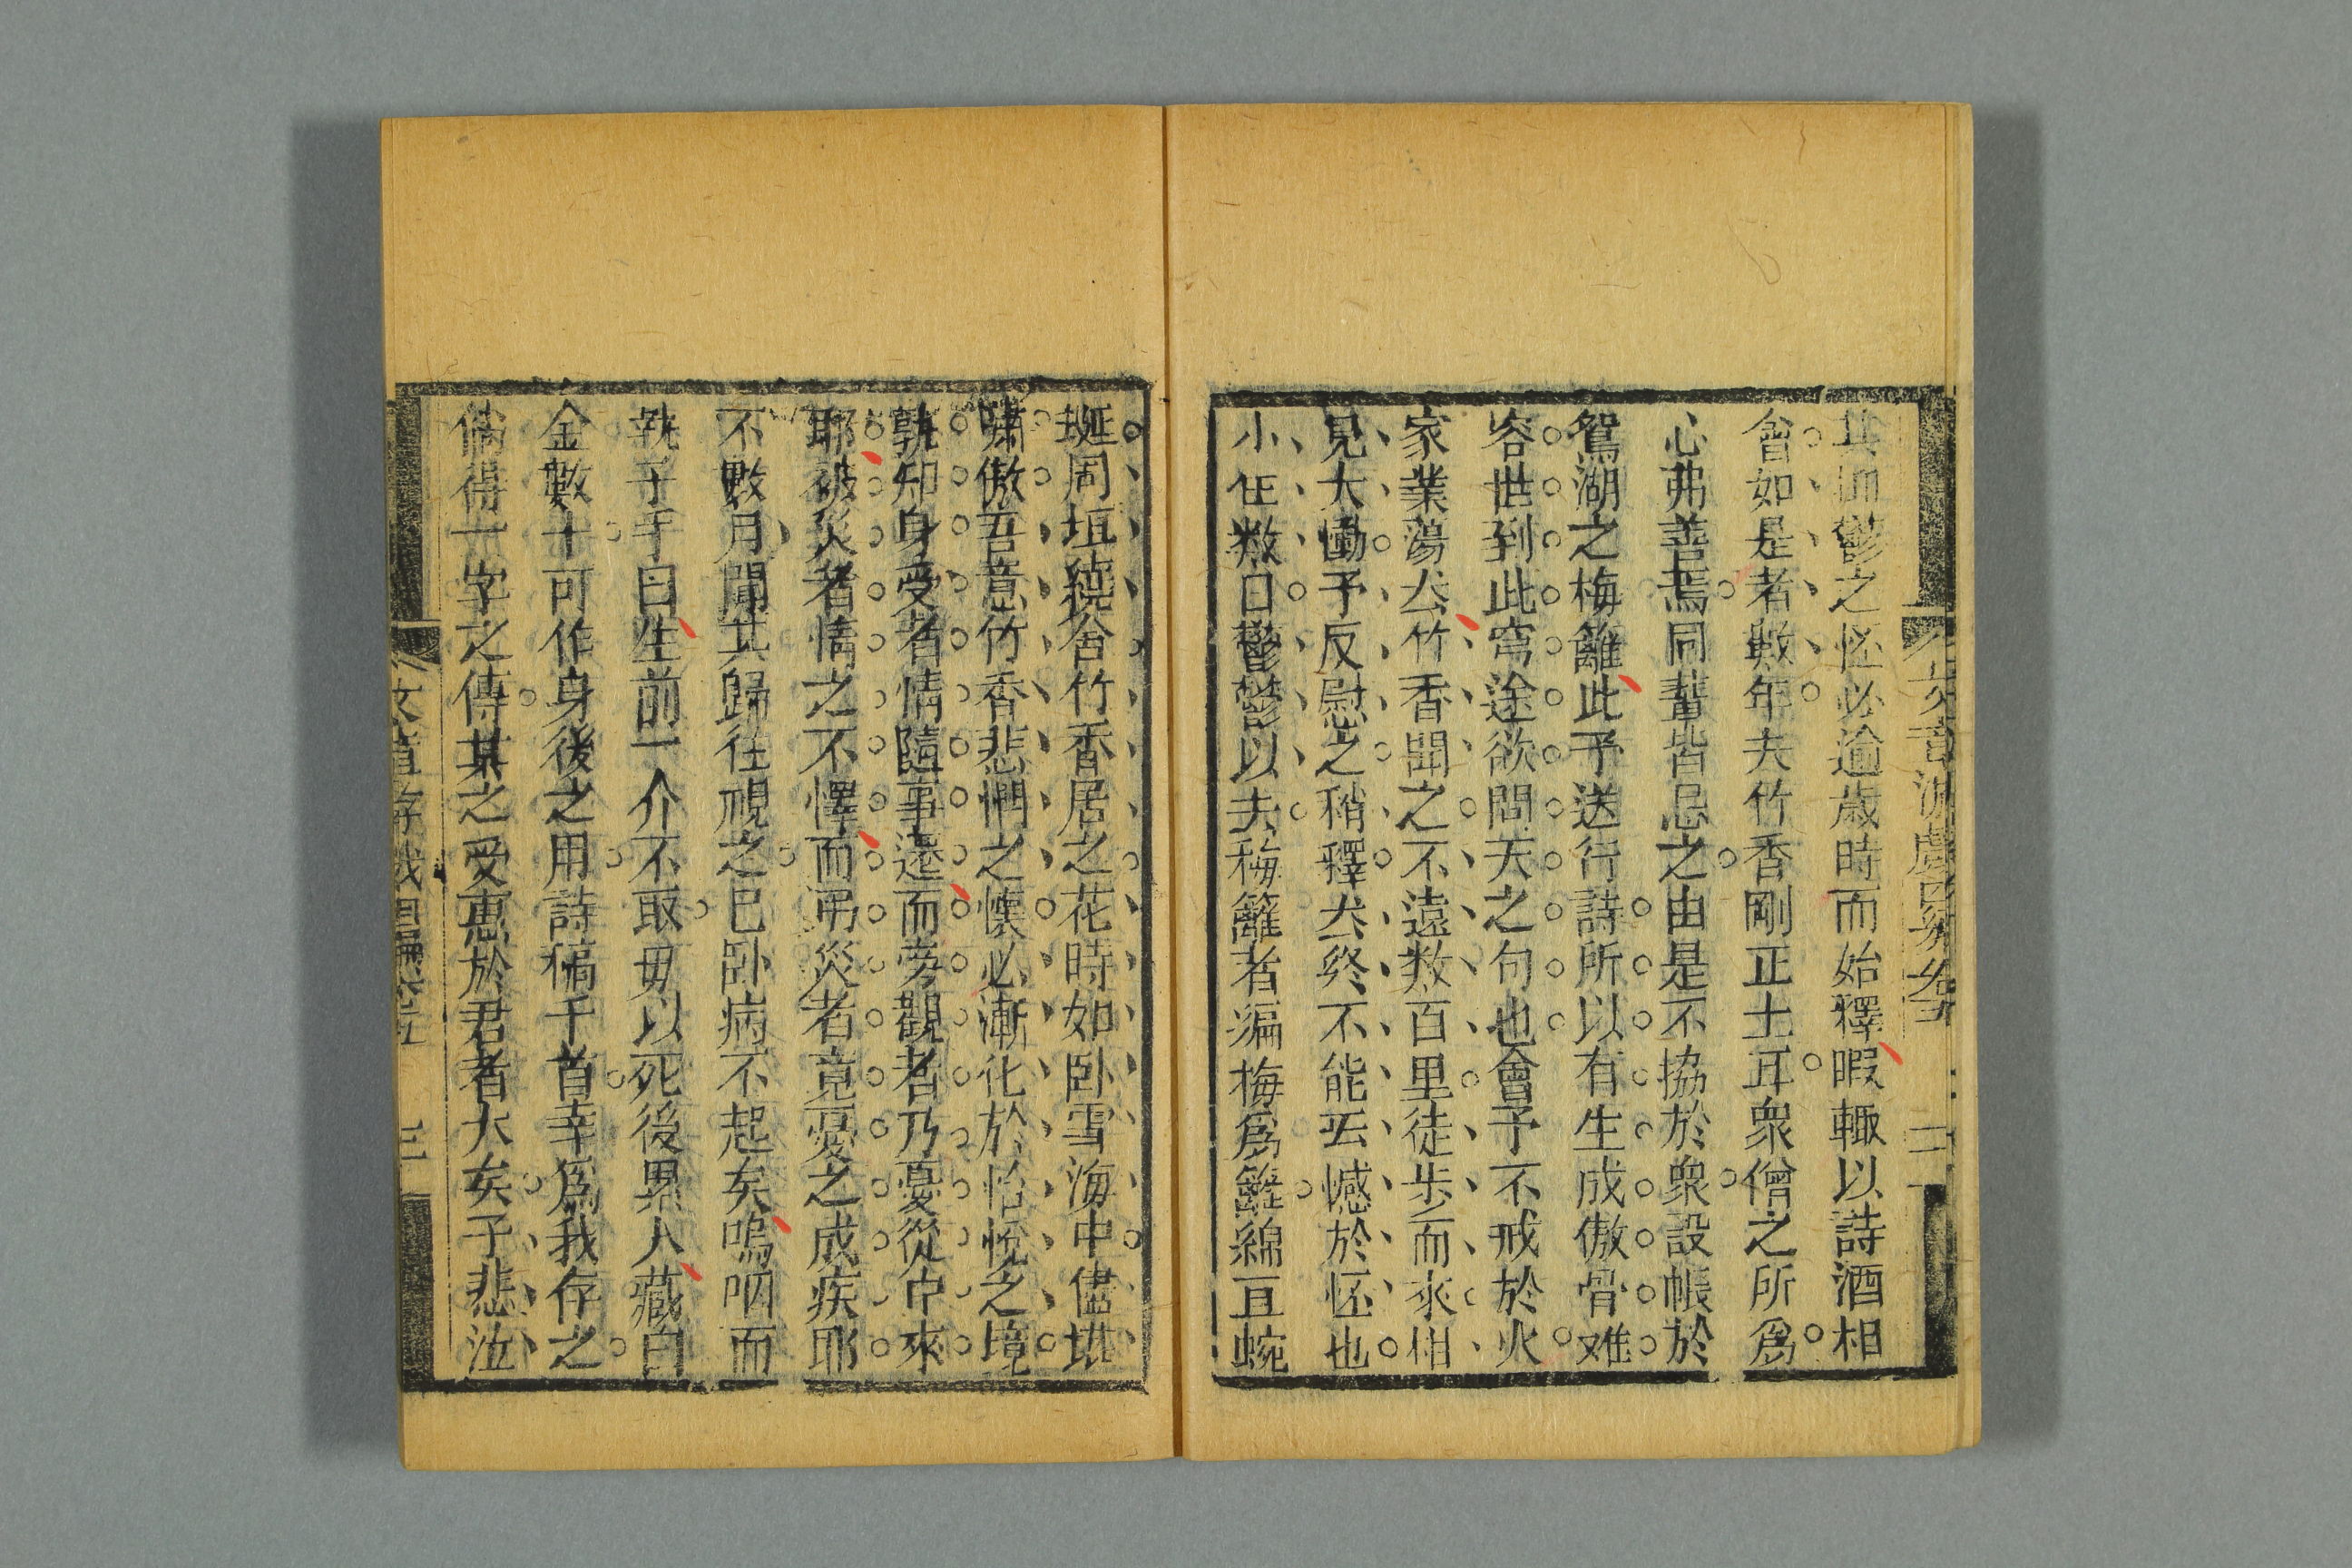 其恤鬱之怪必逾歲時而始釋暇輙以詩酒相
會如是者數年夫竹香剛正士耳衆僧之所爲
心弗善焉同輩皆忌之由是不協於衆設帳於
鴛湖之梅籬此予送行詩所以有生成傲骨难
容世到此窮途欲問天之句也會予不戒於火
家業蕩厺竹香聞之不遠数百里徒步而來相
見大慟予反慰之稍釋厺終不能无憾於怪也
小住数日鬱鬱以去梅籬者编梅爲籬綿亘蜿
埏周垣繞舍竹香居之花時如卧雪海中儘堪
嘯傲吾意竹香悲憫之懷必漸化於怡悅之境
孰知身受者情隨事遷而旁觀者乃憂從中來
耶被災者情之不懌而弔災者竟憂之成疾耶
不數月聞其歸往視之已卧病不起矣嗚咽而
執予手曰生前一介不取毋以死後累人藏白
金數十可作身後之用詩稿千首幸爲我存之
倘得一字之傳某之受惠於君者大矣予悲泣